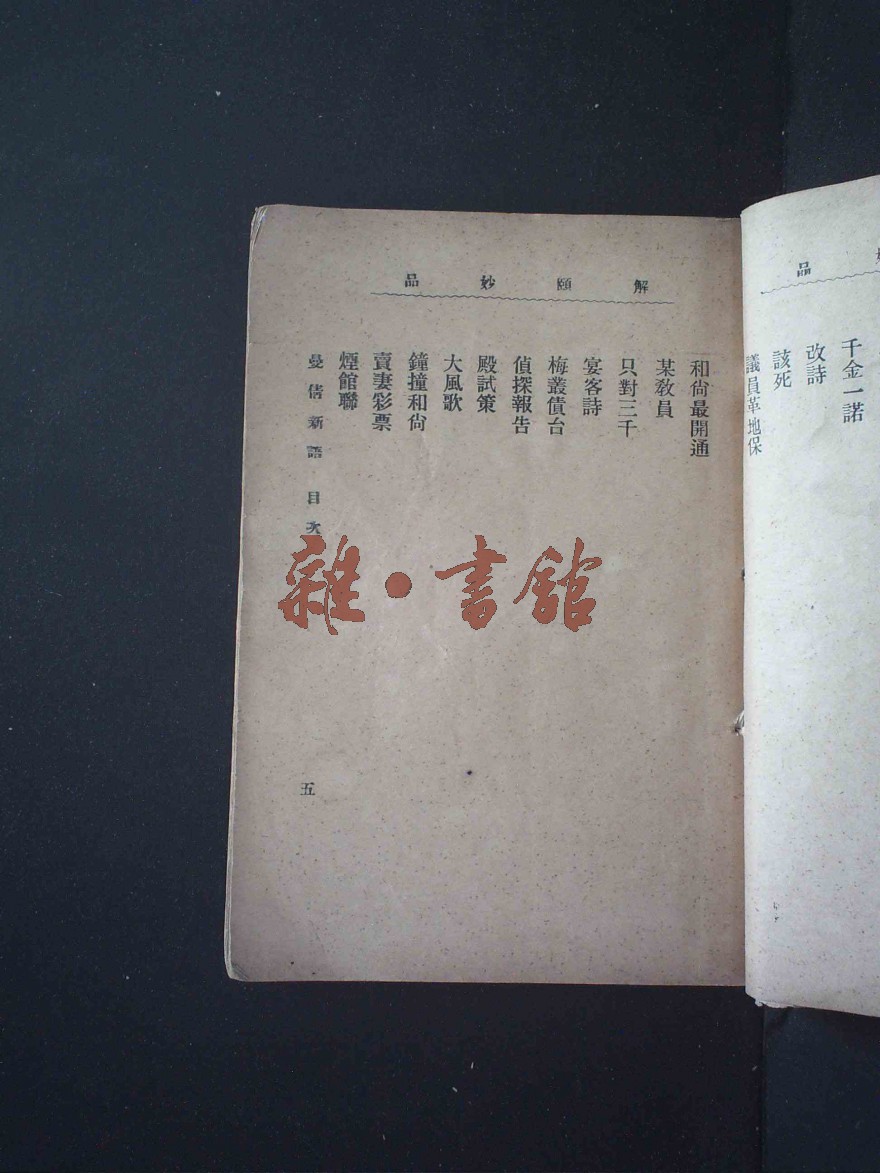 妙品
千金一諾
改詩
該死
議員革地保
解頤妙品
和尚最開通
某敎員
只對三千
宴客詩
梅叢債台
偵探報告
殿試策
大風歌
鐘撞和尚
賣妻彩票
煙館聯
曼倩新語 目次
五
雜·書館